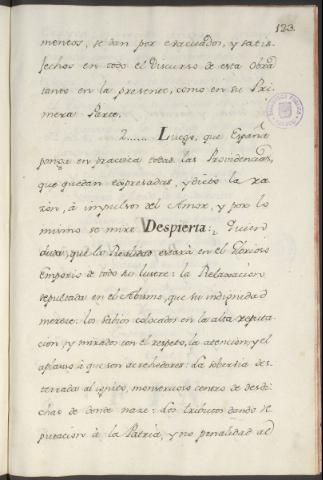 123.
mentos, se dan por evacuados, y satis-
fechos en todo el Discurso de esta Obra
tanto en la presente, como en su Pri-
mera Parte.
2...... Luego, que España
ponga en practica todas las Providencias,
que quedan expresadas, y dicto la ra-
zon, à impulsos del Amor, y por lo
mismo se mire Despierta: ¿ Quien
duda, que la Realidad estarà en el Glorioso
Emporio de todo su lustre: la Relaxacion
sepultada en el Abismo, que su indignidad
merece: los Sabios colocados en la alta reputa-
cion, y mirados con el respeto, la atencion, y el
aplauso à que son acrehedores: La soberbia des-
terrada al ignito, monstruoso centro de desdi-
chas de donde nace: Los tributos dando re-
putacion à la Patria, y no penalidad al